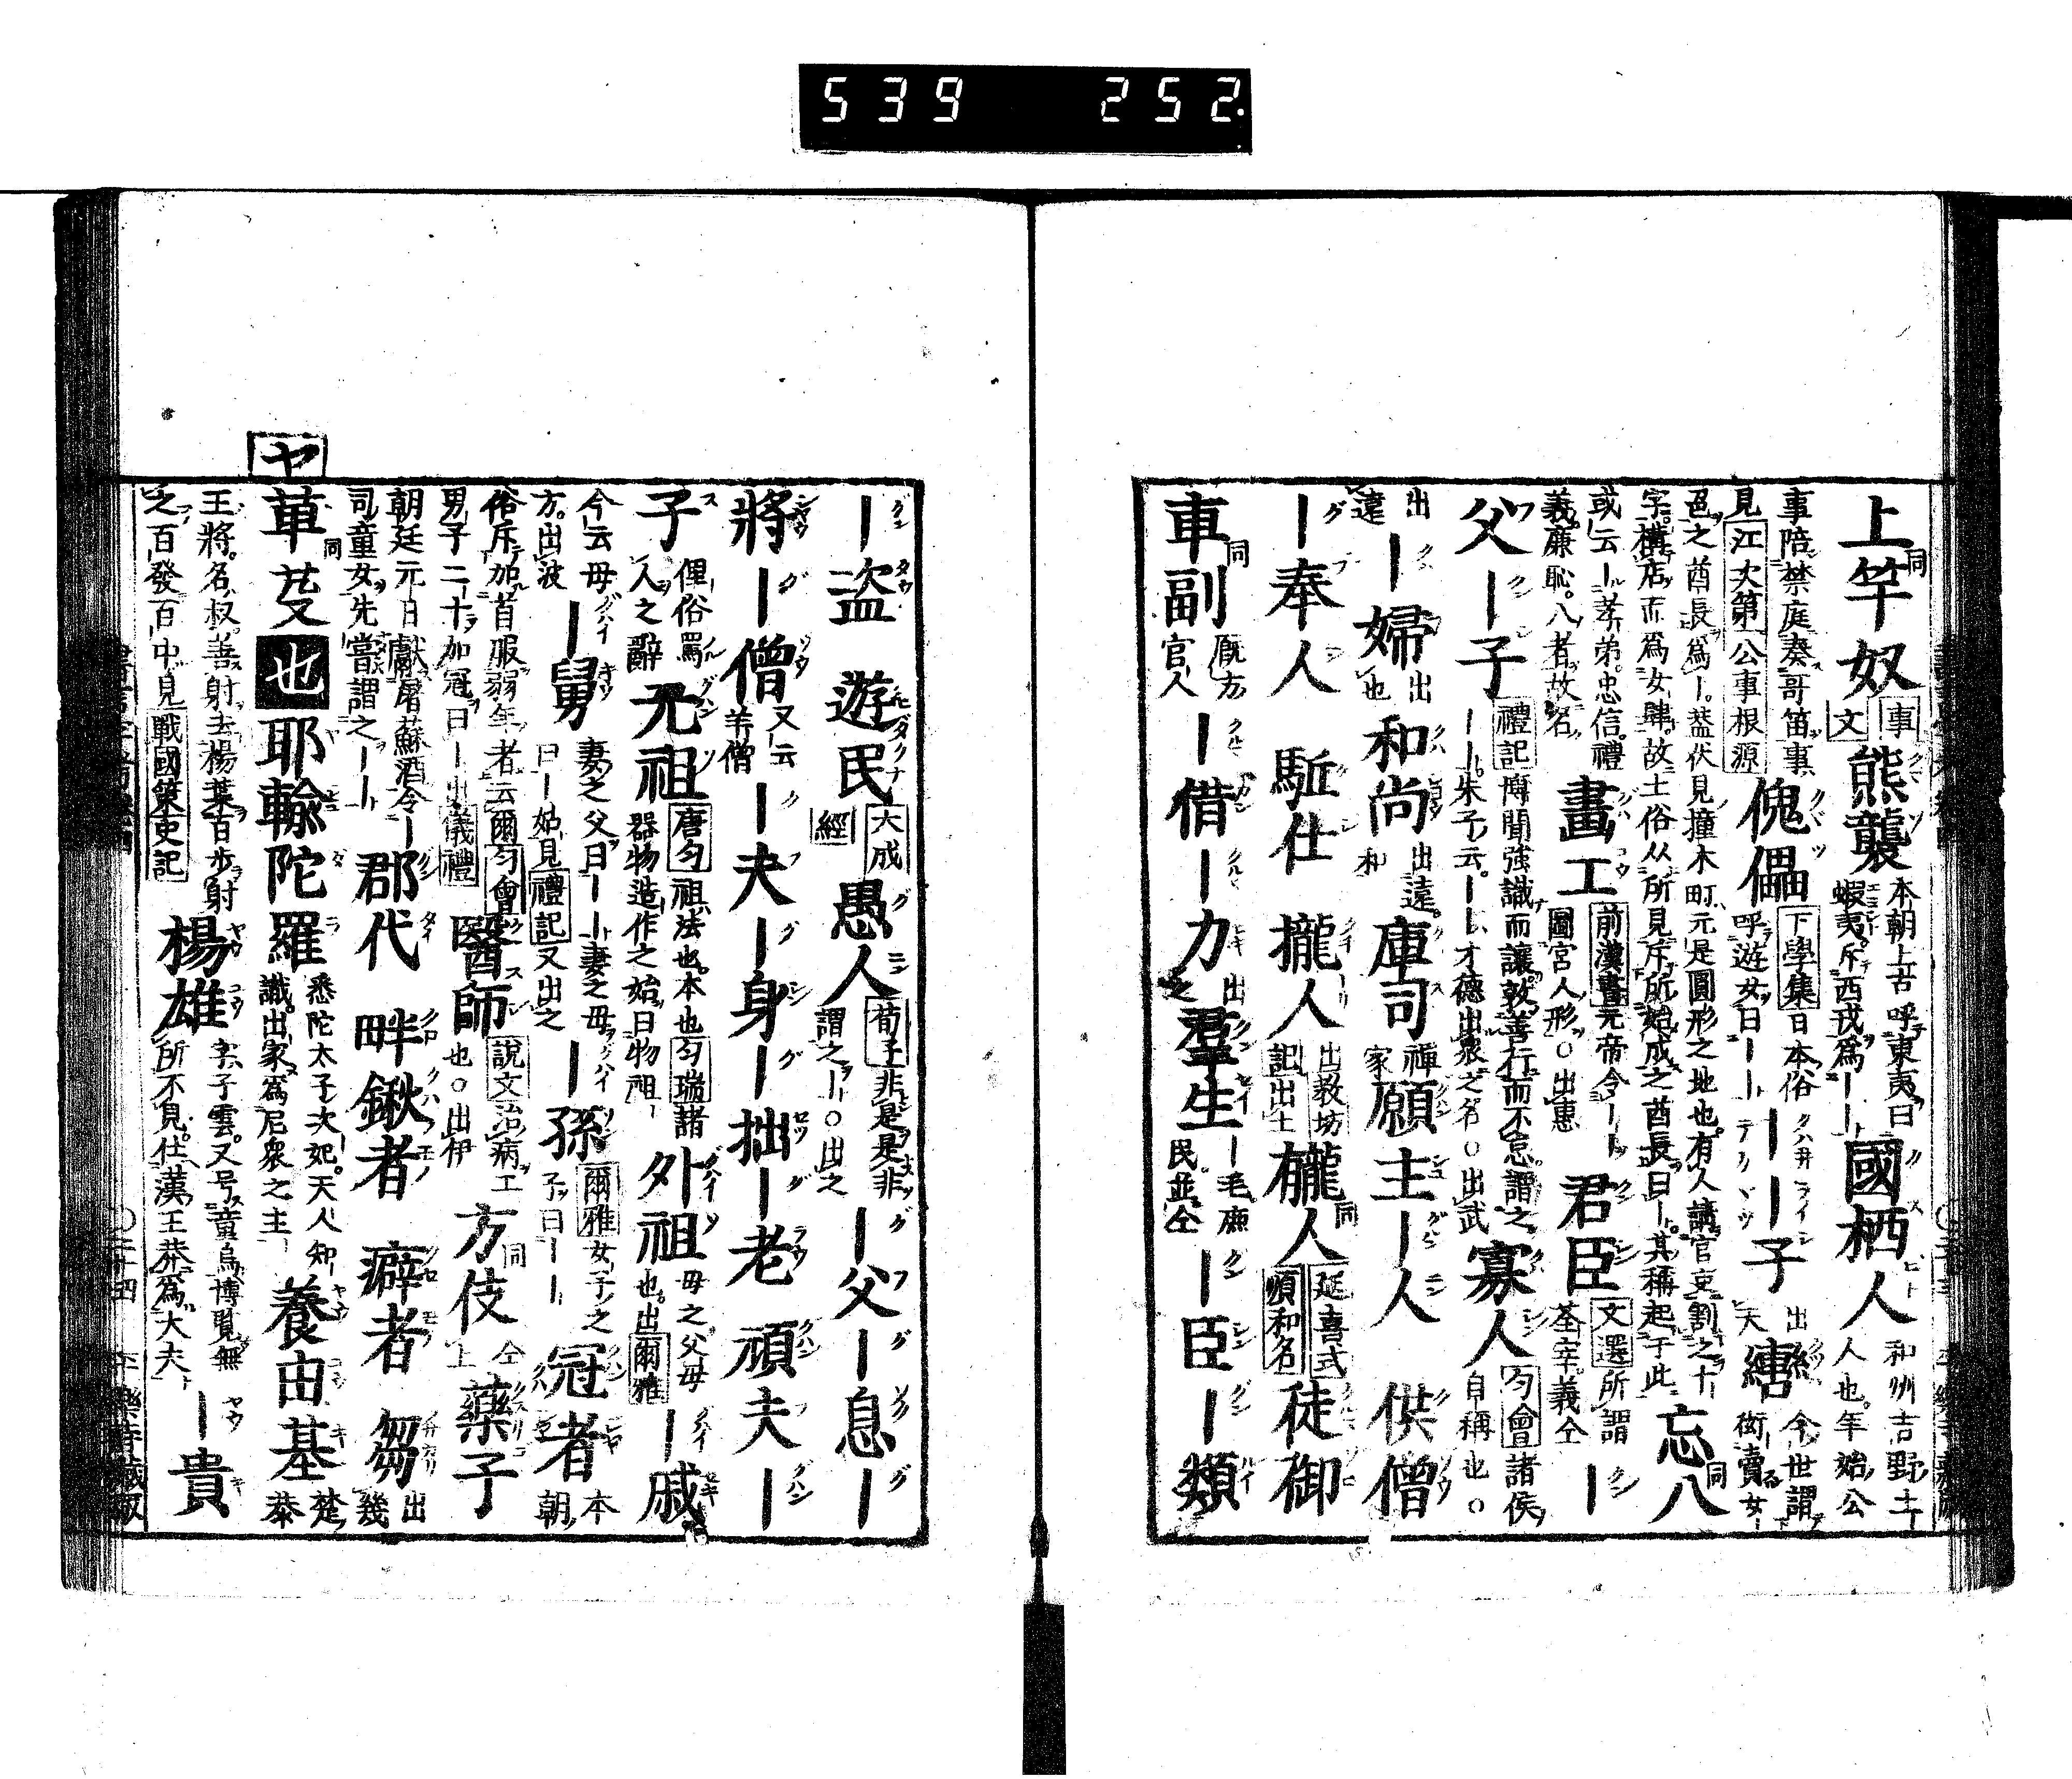 539 252
上竿奴 同 事文 熊襲 本朝上古呼東夷曰 蝦夷斥西戎爲｜｜ 國栖人 和州吉野土 人也年始公
事陪禁庭奏哥笛事 見江次第公事根源 傀儡 下學集日本俗 呼遊女曰｜｜ ｜｜子 出天 今世謂 衒賣女
邑之酋長爲｜。蓋伏見撞木町元是圓形之地也。有人請官吏割之十
字構店而爲女肆故土俗从所見斥所始成之酋長曰｜。其稱起于此 忘八 同
或云｜孝弟忠信禮 義廉恥。八者故名 畫工 前漢書元帝令｜｜ 圖宮人形○出惠 君臣 文選所謂 荃宰義仝 ｜
父｜子 禮記博聞強識而讓敦善行而不怠謂之 ｜｜。朱子云。｜｜才德出衆之名○出武 寡人 匀會諸侯 自稱也○
出遠 ｜婦 出也 和尚 出遠和 庫司 禪家 願主 ｜人 供僧
｜奉人 駈仕 擺人 出教坊 記出土 人 同 延喜式 順和名 徒御
車副 同 厩方 官人 ｜借｜力 出之 羣生 ｜毛庶 民並仝 ｜臣｜類
｜盗 遊民 大成經 愚人 荀子非是是非 謂之｜｜○出之 ｜父｜息｜
將｜僧 又云 羊僧 ｜夫｜身｜拙｜老 頑夫｜
子 俚俗罵 人之辭 元祖 唐匀祖法也。本也匀瑞諸 器物造作之始曰物祖 外祖 母之父母 也。出爾雅 ｜戚
今云母 方。出波 ｜舅 妻之父曰｜｜妻之母 曰｜姑見禮記又出之 ｜孫 爾雅女子之 子曰｜｜ 冠者 本朝
俗斥加首服弱年者云爾匀會 男子二十加冠曰｜出儀禮 醫師 說文治病工 也○出伊 方伎 同 仝上 藥子
朝廷元日獻屠蘇酒令 司童女先嘗謂之｜｜ 郡代 畔鍬者 癖者 芻 出幾
草芟 同
ヤ
也 耶輸陀羅 悉陀太子次妃。天人知 識。出家爲尼衆之主 養由基 楚恭
王將。名叔善射去楊葉百步射 之百發百中見戰國策史記 楊雄 字子雲。又号童烏博覽無 所不見。仕漢王莽爲大夫 ｜貴